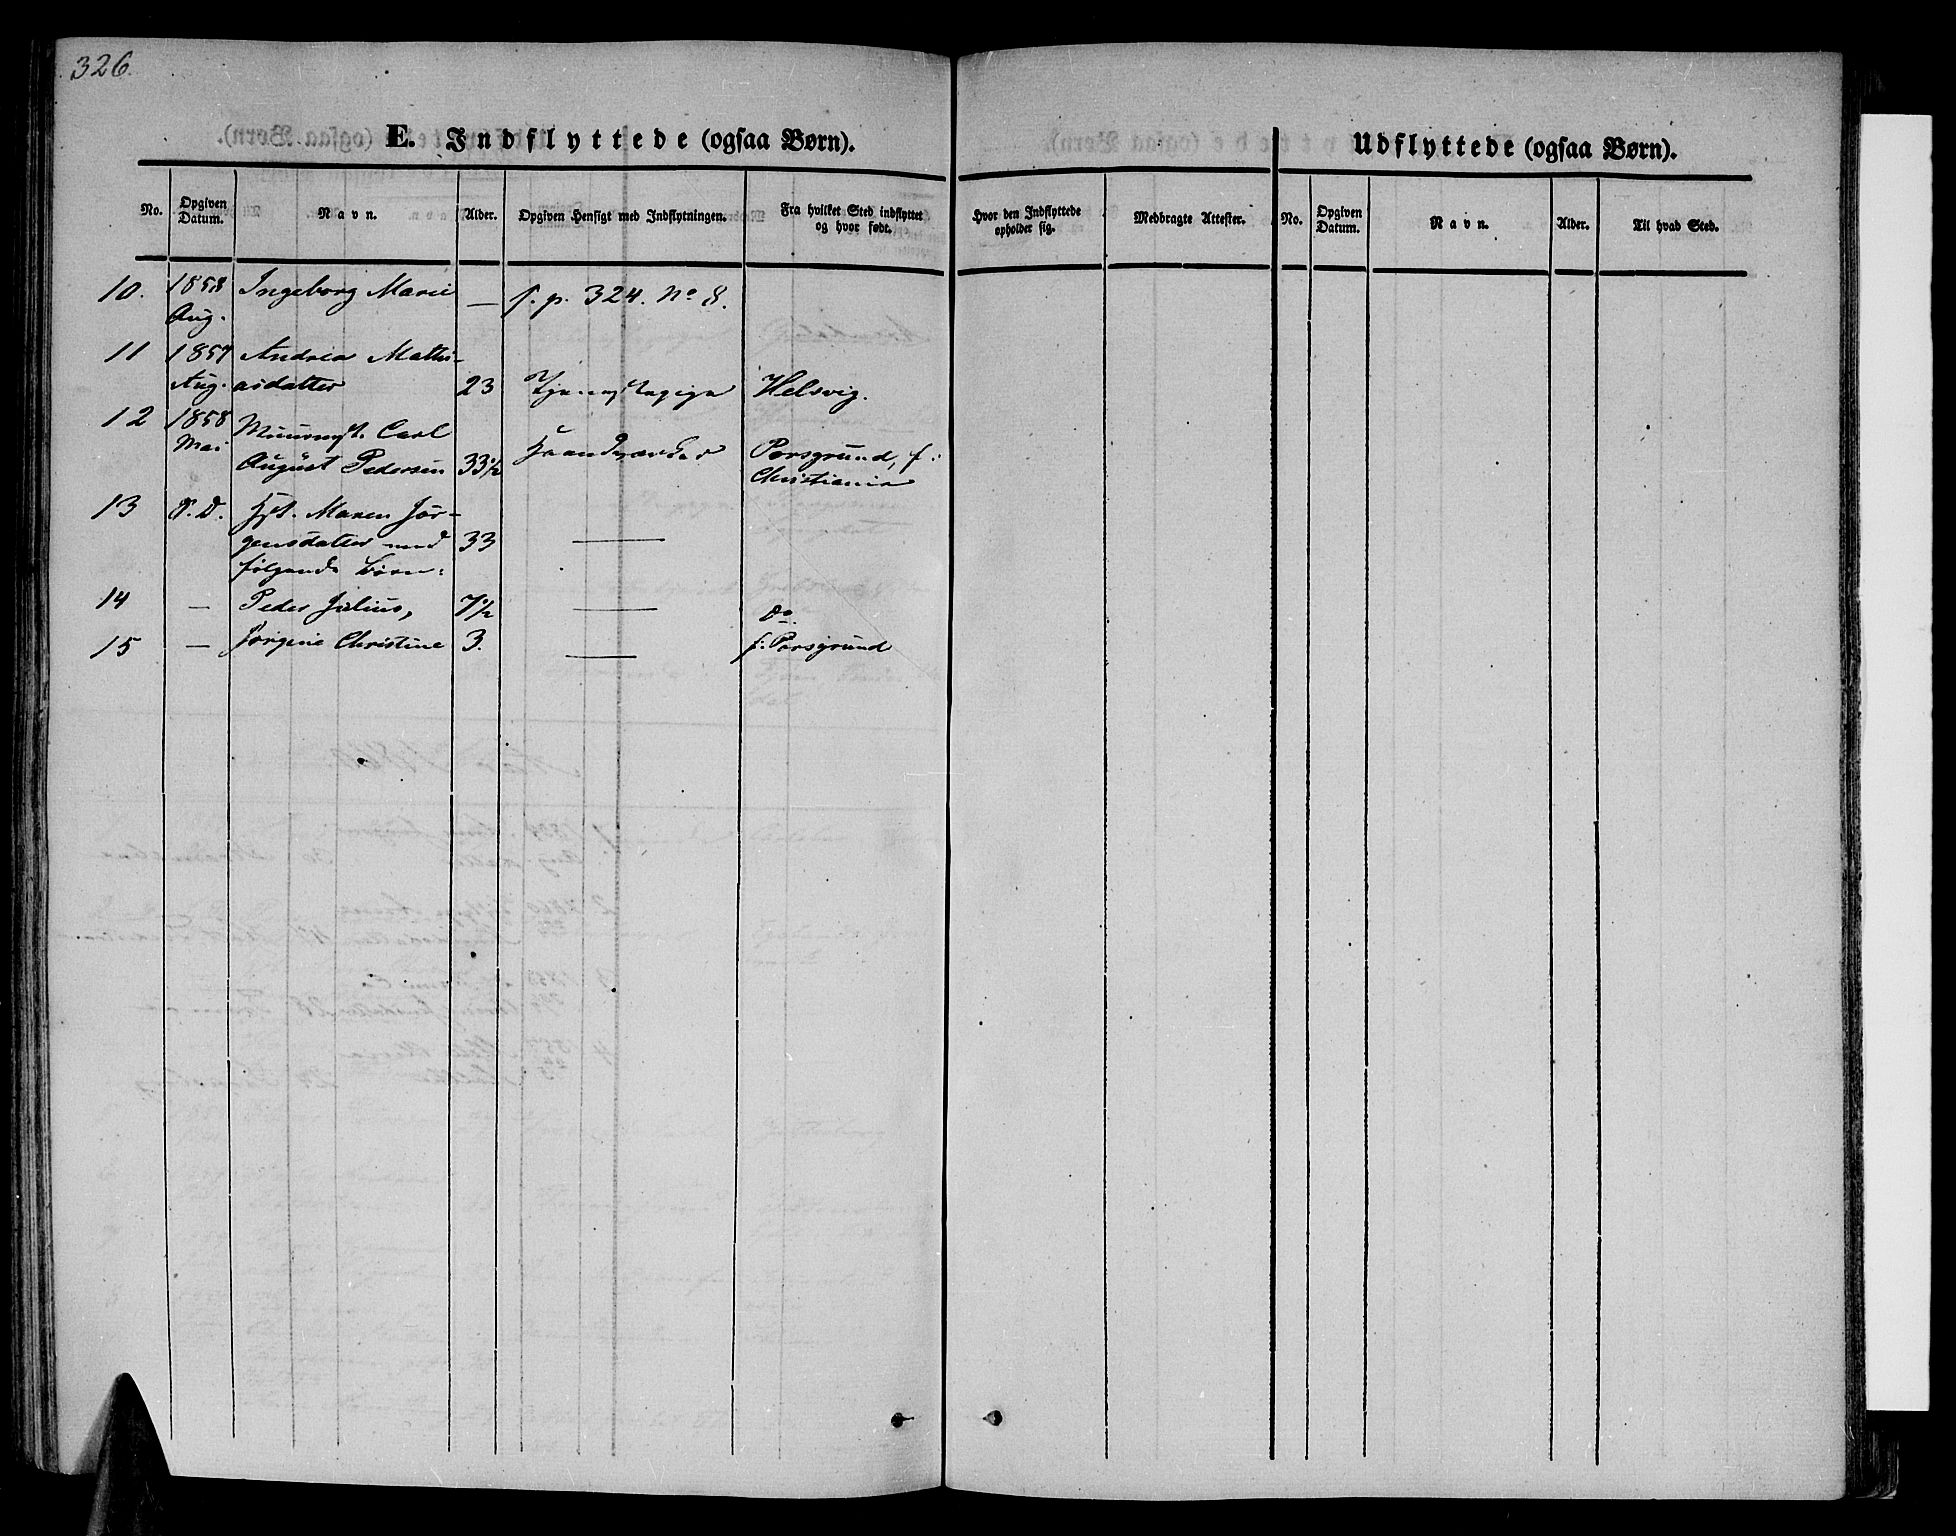 326.
E. Indflyttede (ogsaa Børn).
No. Opgiven Datum. Navn. Alder. Opgiven Hensigt med Indflytningen. Fra hvilket Sted indflyttet og hvor født.
Hvor den Indflyttede opholder sig. Medbragte Attester.
Udflyttede (ogsaa Børn).
No. Opgiven Datum. Navn. Alder. Til hvad Sted.
10. 1858 Ingeborg Marie — s. p. 324. No 8.
Aug.
11 1857 Andrea Mathi-
Aug. asdatter 23 Tjenestepige Helsvig.
12 1858 Muurmst. Carl
Mai August Pedersen 33½ Haandværker Porsgrund, f:
Christiania
13 S. D. Hst. Maren Jør-
gensdatter med 33 —
følgende Børn:
14 — Peder Julius, 7½ — do
15 — Jørgine Christine 3. — f: Porsgrund